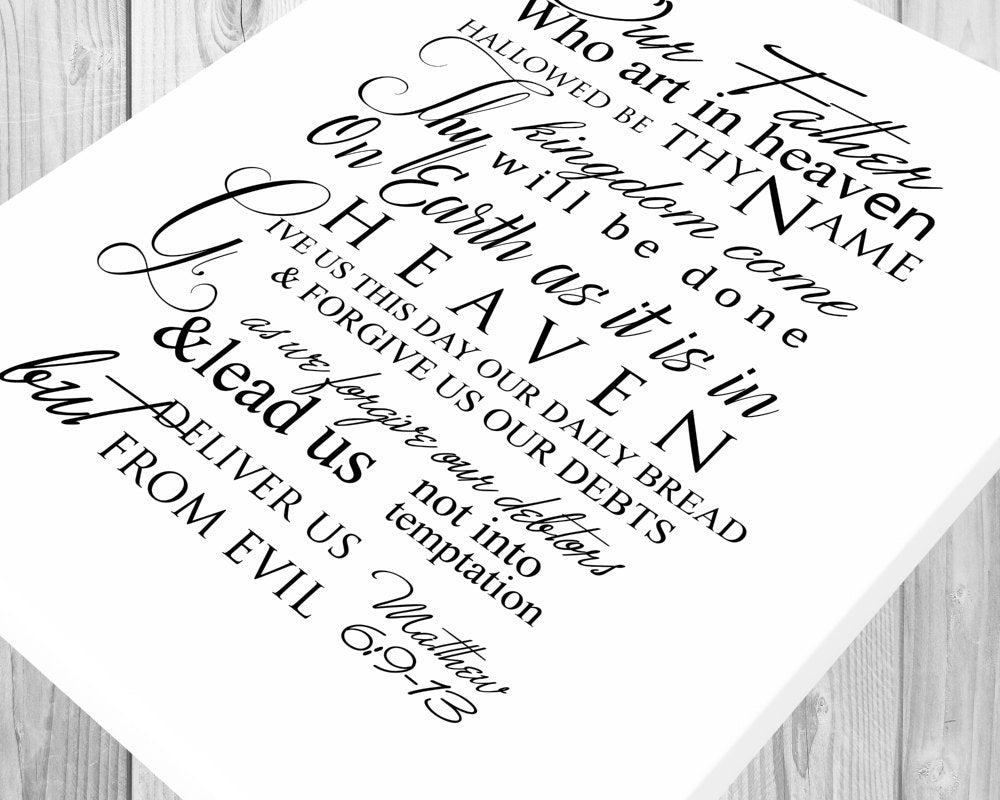 Our Father
Who art in heaven
HALLOWED BE THY NAME
Thy kingdom come
will be done
On Earth as it is in
HEAVEN
GIVE US THIS DAY OUR DAILY BREAD
& FORGIVE US OUR DEBTS
as we forgive our debtors
&lead us
not into
temptation
but DELIVER US
FROM EVIL
Matthew
6:9-13